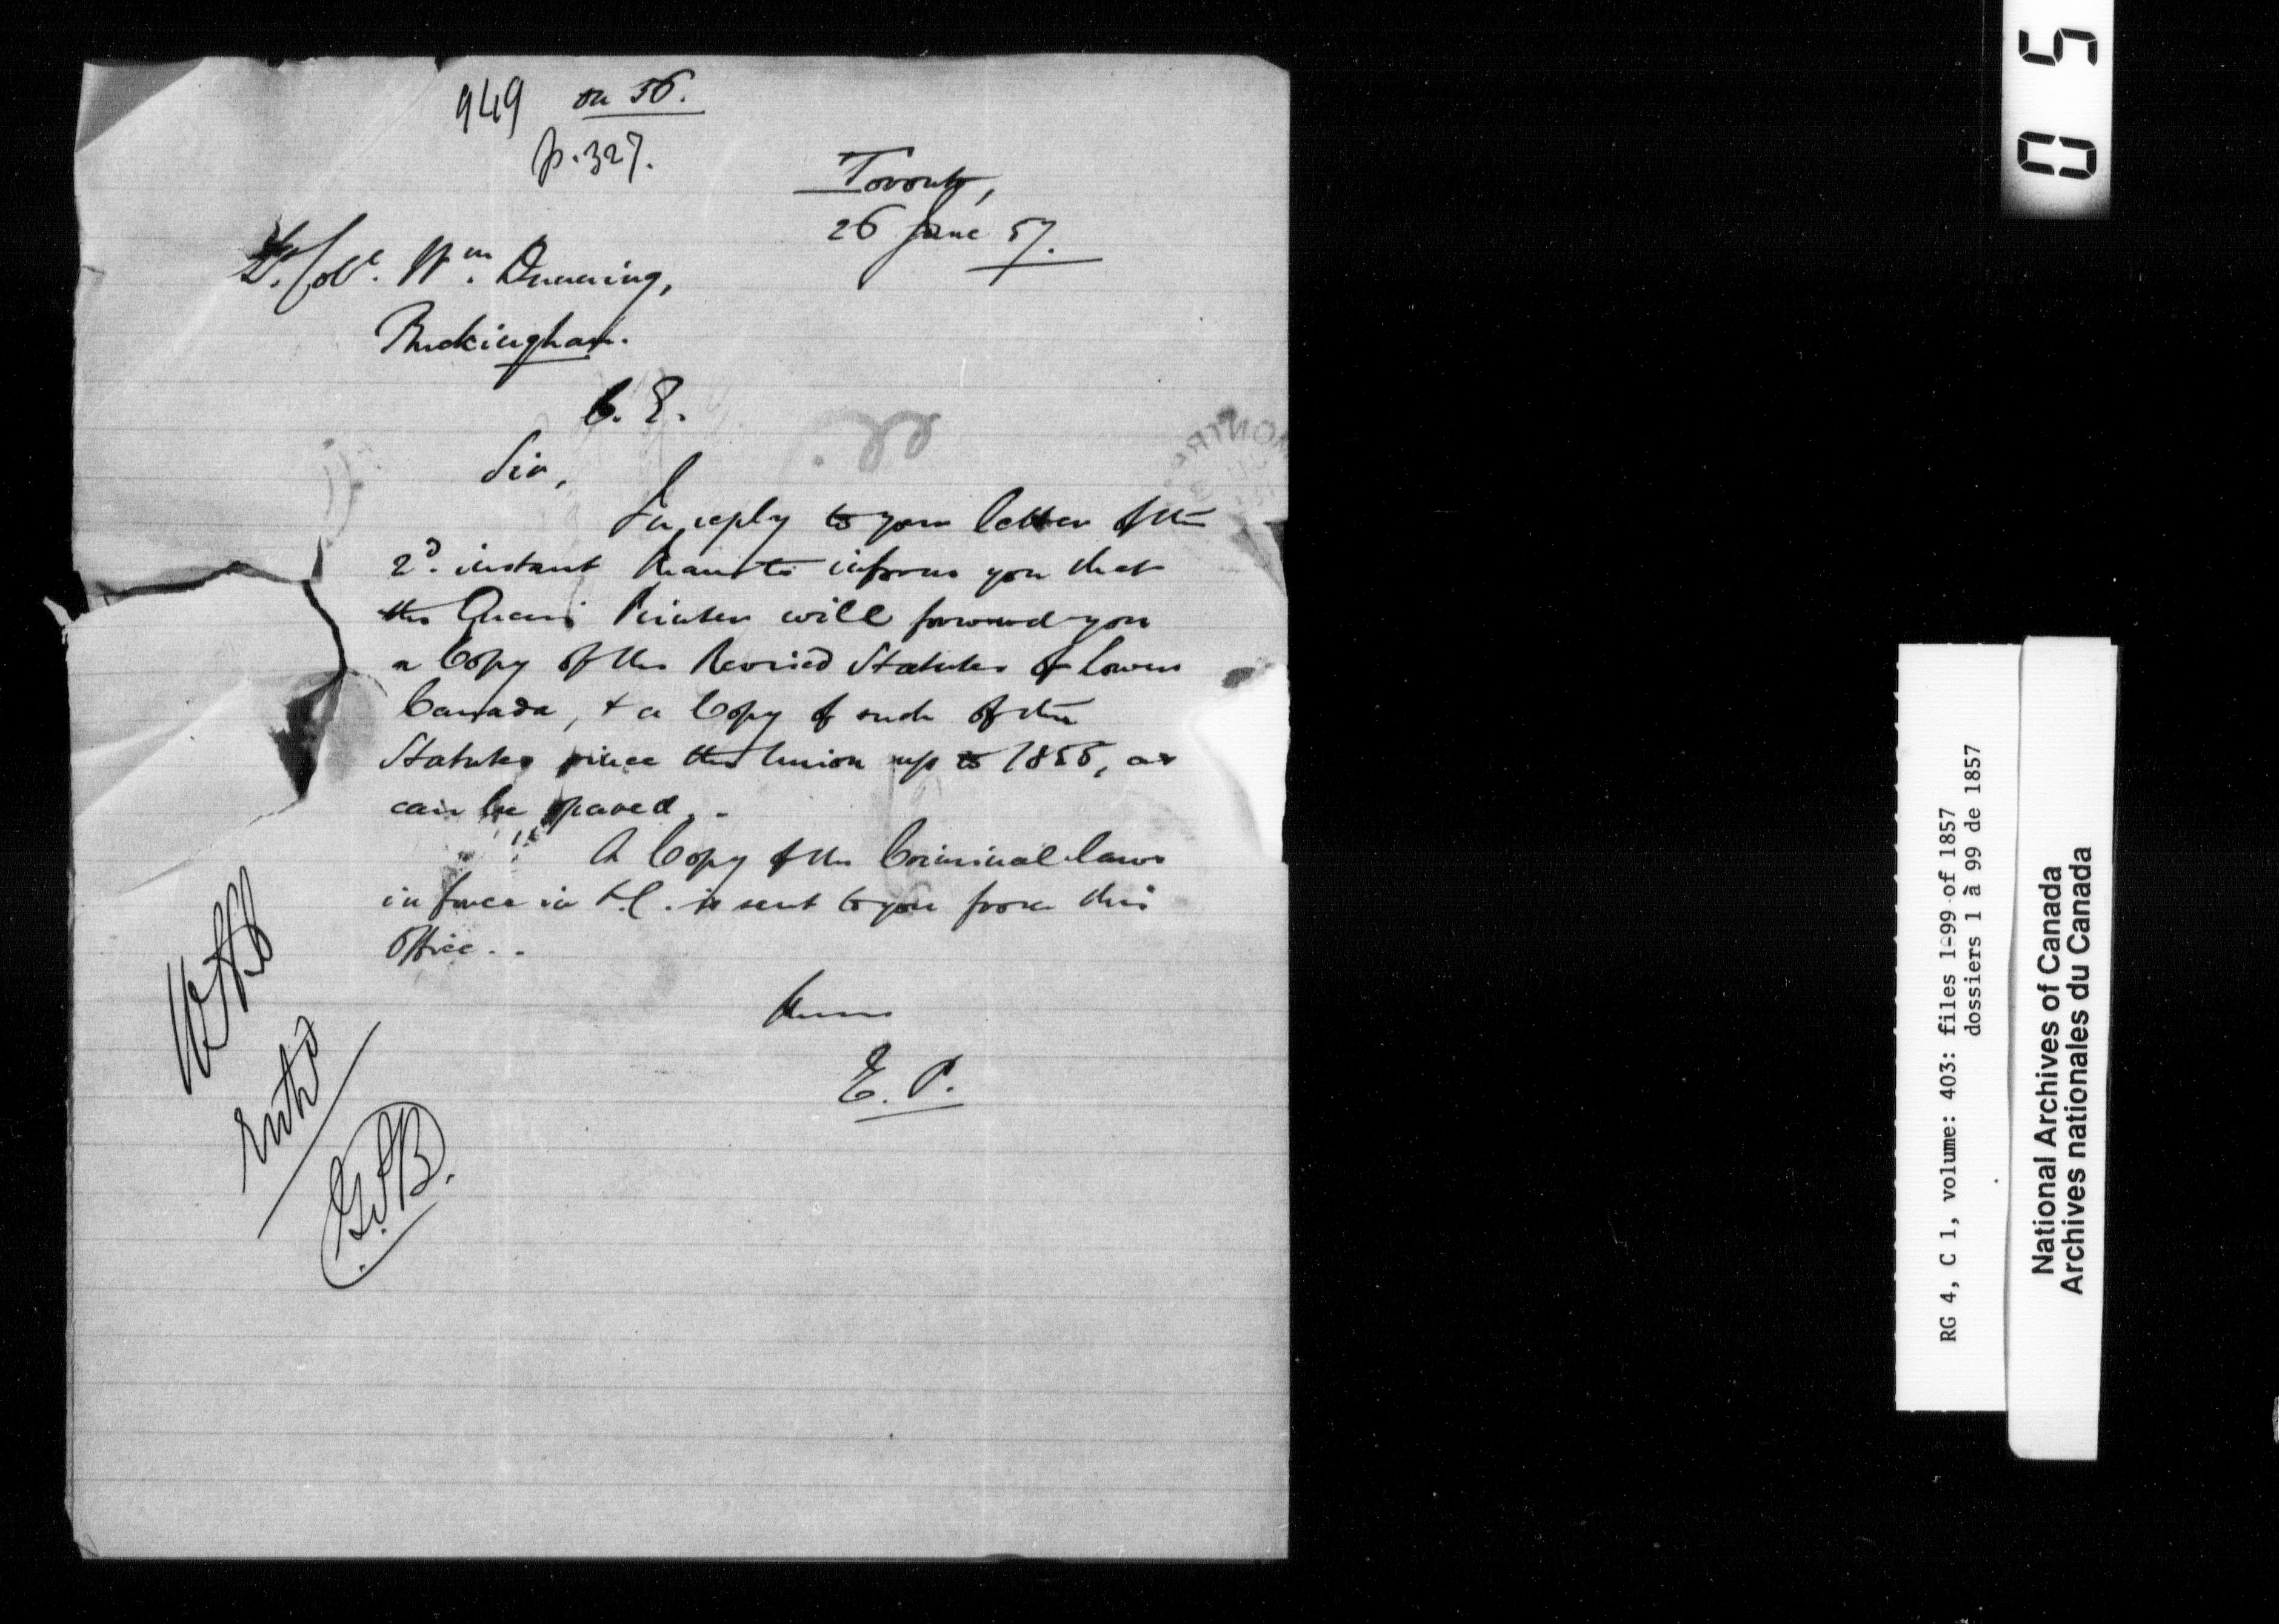 949 on 56.
p. 327.
Toronto,
26 June 57.
Lt. Col. Wm Dunning,
Buckingham.
C. E.
Sir,
In reply to your letter of the
2d. instant I have to inform you that
the Queen's Printer will forward you
a Copy of the Revised Statutes of Lower
Canada, & a Copy of such of the
Statutes since the Union up to 1855, as
can be spared. -
A Copy of the Criminal laws
in force in L.C. is sent to you from this
Office. -
E. P.
G.P.B.
05
RG 4, C 1, volume: 403: files 1-99 of 1857
dossiers 1 à 99 de 1857
National Archives of Canada
Archives nationales du Canada